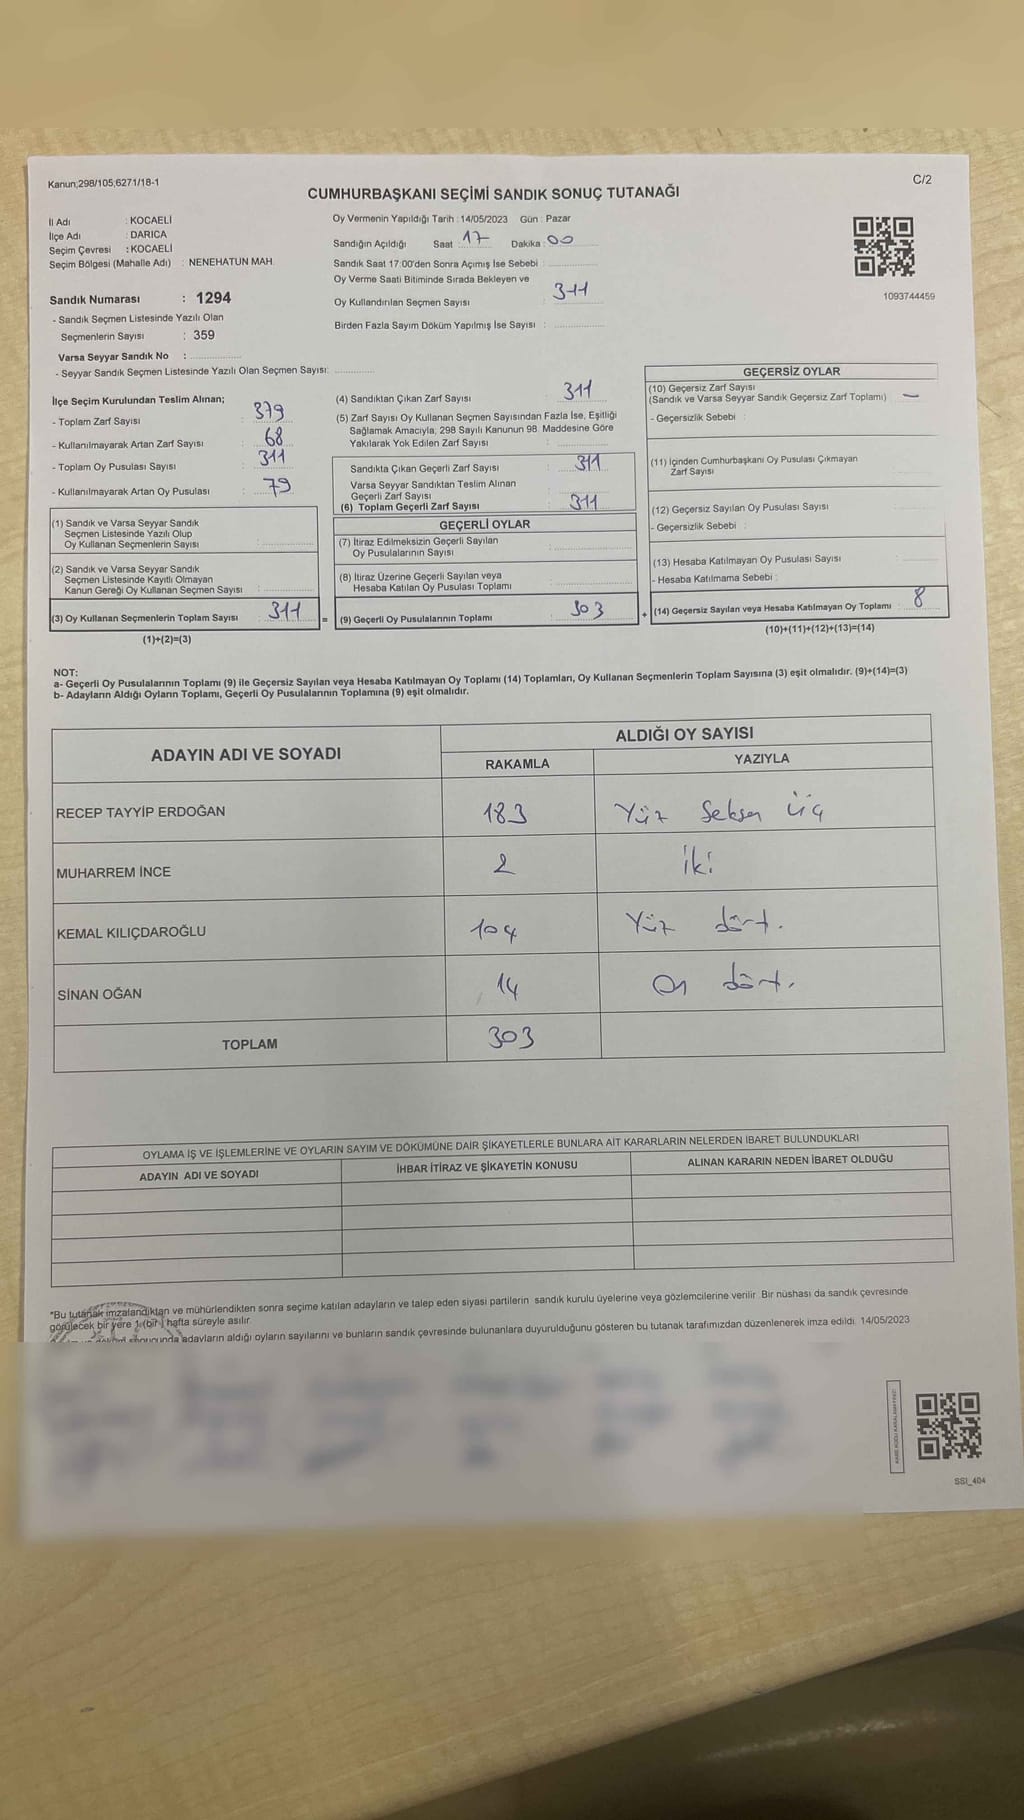 Kanun;298/105,6271/18-1
C/2
CUMHURBAŞKANI SEÇİMİ SANDIK SONUÇ TUTANAĞI
İl Adı : KOCAELİ
İlçe Adı : DARICA
Seçim Çevresi : KOCAELİ
Seçim Bölgesi (Mahalle Adı) : NENEHATUN MAH.
Sandık Numarası : 1294
- Sandık Seçmen Listesinde Yazılı Olan
Seçmenlerin Sayısı : 359
Varsa Seyyar Sandık No :
- Seyyar Sandık Seçmen Listesinde Yazılı Olan Seçmen Sayısı:
Oy Vermenin Yapıldığı Tarih : 14/05/2023 Gün : Pazar
Sandığın Açıldığı Saat : 17 Dakika : 00
Sandık Saat 17:00'den Sonra Açımış İse Sebebi :
Oy Verme Saati Bitiminde Sırada Bekleyen ve
Oy Kullandırılan Seçmen Sayısı : 311
Birden Fazla Sayım Döküm Yapılmış İse Sayısı :
1093744459
İlçe Seçim Kurulundan Teslim Alınan;
- Toplam Zarf Sayısı : 379
- Kullanılmayarak Artan Zarf Sayısı : 68
- Toplam Oy Pusulası Sayısı : 311
- Kullanılmayarak Artan Oy Pusulası : 79
(1) Sandık ve Varsa Seyyar Sandık
Seçmen Listesinde Yazılı Olup
Oy Kullanan Seçmenlerin Sayısı :
(2) Sandık ve Varsa Seyyar Sandık
Seçmen Listesinde Kayıtlı Olmayan
Kanun Gereği Oy Kullanan Seçmen Sayısı :
(3) Oy Kullanan Seçmenlerin Toplam Sayısı : 311
(1)+(2)=(3)
(4) Sandıktan Çıkan Zarf Sayısı : 311
(5) Zarf Sayısı Oy Kullanan Seçmen Sayısından Fazla İse, Eşitliği
Sağlamak Amacıyla, 298 Sayılı Kanunun 98. Maddesine Göre
Yakılarak Yok Edilen Zarf Sayısı :
Sandıkta Çıkan Geçerli Zarf Sayısı : 311
Varsa Seyyar Sandıktan Teslim Alınan
Geçerli Zarf Sayısı :
(6) Toplam Geçerli Zarf Sayısı : 311
GEÇERLİ OYLAR
(7) İtiraz Edilmeksizin Geçerli Sayılan
Oy Pusulalarının Sayısı :
(8) İtiraz Üzerine Geçerli Sayılan veya
Hesaba Katılan Oy Pusulası Toplamı :
= (9) Geçerli Oy Pusulalarının Toplamı : 303
GEÇERSİZ OYLAR
(10) Geçersiz Zarf Sayısı
(Sandık ve Varsa Seyyar Sandık Geçersiz Zarf Toplamı) : —
- Geçersizlik Sebebi :
(11) İçinden Cumhurbaşkanı Oy Pusulası Çıkmayan
Zarf Sayısı
(12) Geçersiz Sayılan Oy Pusulası Sayısı :
- Geçersizlik Sebebi :
(13) Hesaba Katılmayan Oy Pusulası Sayısı :
- Hesaba Katılmama Sebebi :
+ (14) Geçersiz Sayılan veya Hesaba Katılmayan Oy Toplamı : 8
(10)+(11)+(12)+(13)=(14)
NOT:
a- Geçerli Oy Pusulalarının Toplamı (9) ile Geçersiz Sayılan veya Hesaba Katılmayan Oy Toplamı (14) Toplamları, Oy Kullanan Seçmenlerin Toplam Sayısına (3) eşit olmalıdır. (9)+(14)=(3)
b- Adayların Aldığı Oyların Toplamı, Geçerli Oy Pusulalarının Toplamına (9) eşit olmalıdır.
ADAYIN ADI VE SOYADI
ALDIĞI OY SAYISI
RAKAMLA YAZIYLA
RECEP TAYYİP ERDOĞAN 183 Yüz Seksen üç
MUHARREM İNCE 2 iki
KEMAL KILIÇDAROĞLU 104 Yüz dört.
SİNAN OĞAN 14 On dört.
TOPLAM 303
OYLAMA İŞ VE İŞLEMLERİNE VE OYLARIN SAYIM VE DÖKÜMÜNE DAİR ŞİKAYETLERLE BUNLARA AİT KARARLARIN NELERDEN İBARET BULUNDUKLARI
ADAYIN ADI VE SOYADI İHBAR İTİRAZ VE ŞİKAYETİN KONUSU ALINAN KARARIN NEDEN İBARET OLDUĞU
*Bu tutanak imzalandıktan ve mühürlendikten sonra seçime katılan adayların ve talep eden siyasi partilerin sandık kurulu üyelerine veya gözlemcilerine verilir. Bir nüshası da sandık çevresinde
görülecek bir yere 1 (bir) hafta süreyle asılır.
sonucunda adayların aldığı oyların sayılarını ve bunların sandık çevresinde bulunanlara duyurulduğunu gösteren bu tutanak tarafımızdan düzenlenerek imza edildi. 14/05/2023
SSI_404